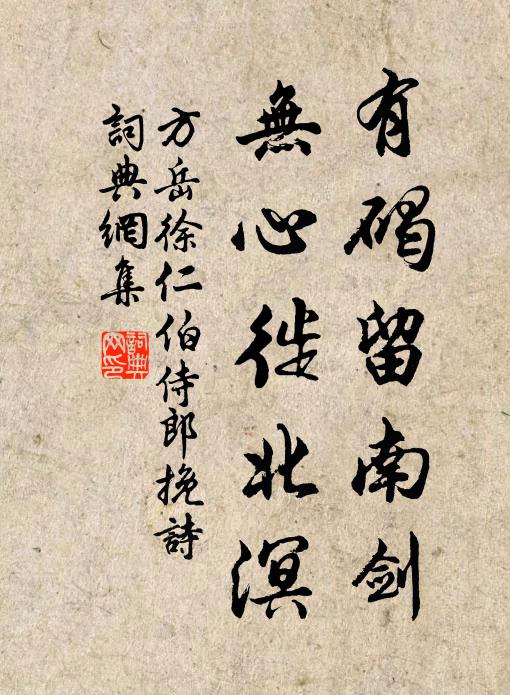 有碣留南剑
無心徙北溟
方岳徐仁伯侍郎挽詩
詞典網集
詞典
网印